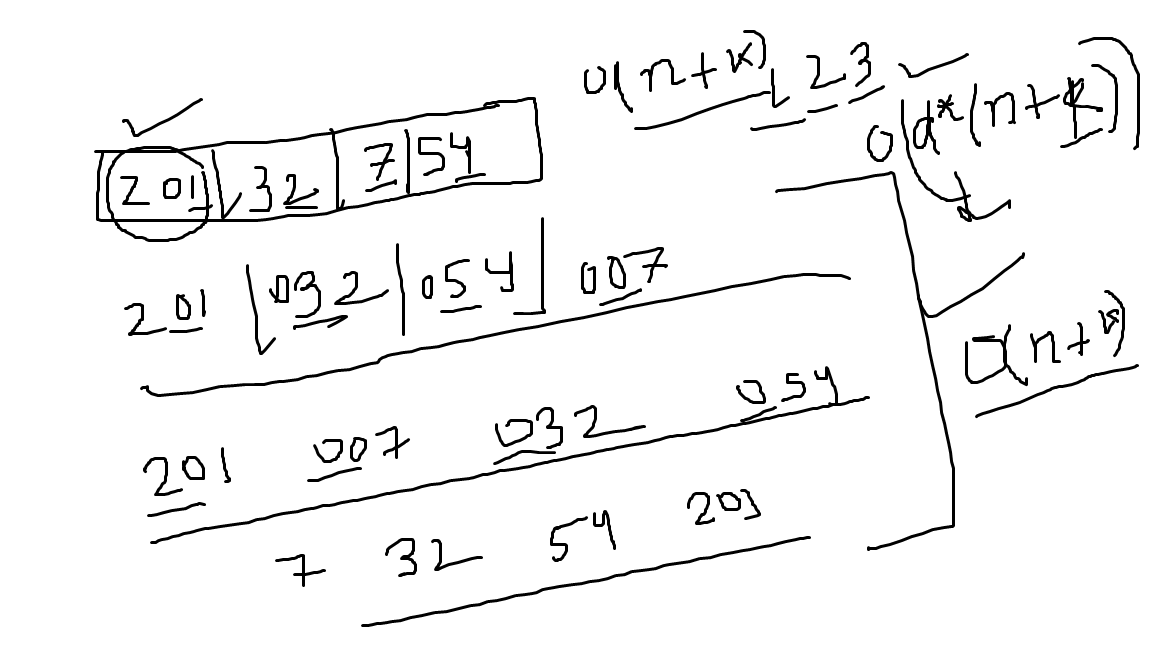 O(n+k) 1 2 3
O(d*(n+k))
201 | 32 | 7 | 54
d
201 | 032 | 054 | 007
O(n+k)
201 007 032 054
7 32 54 201